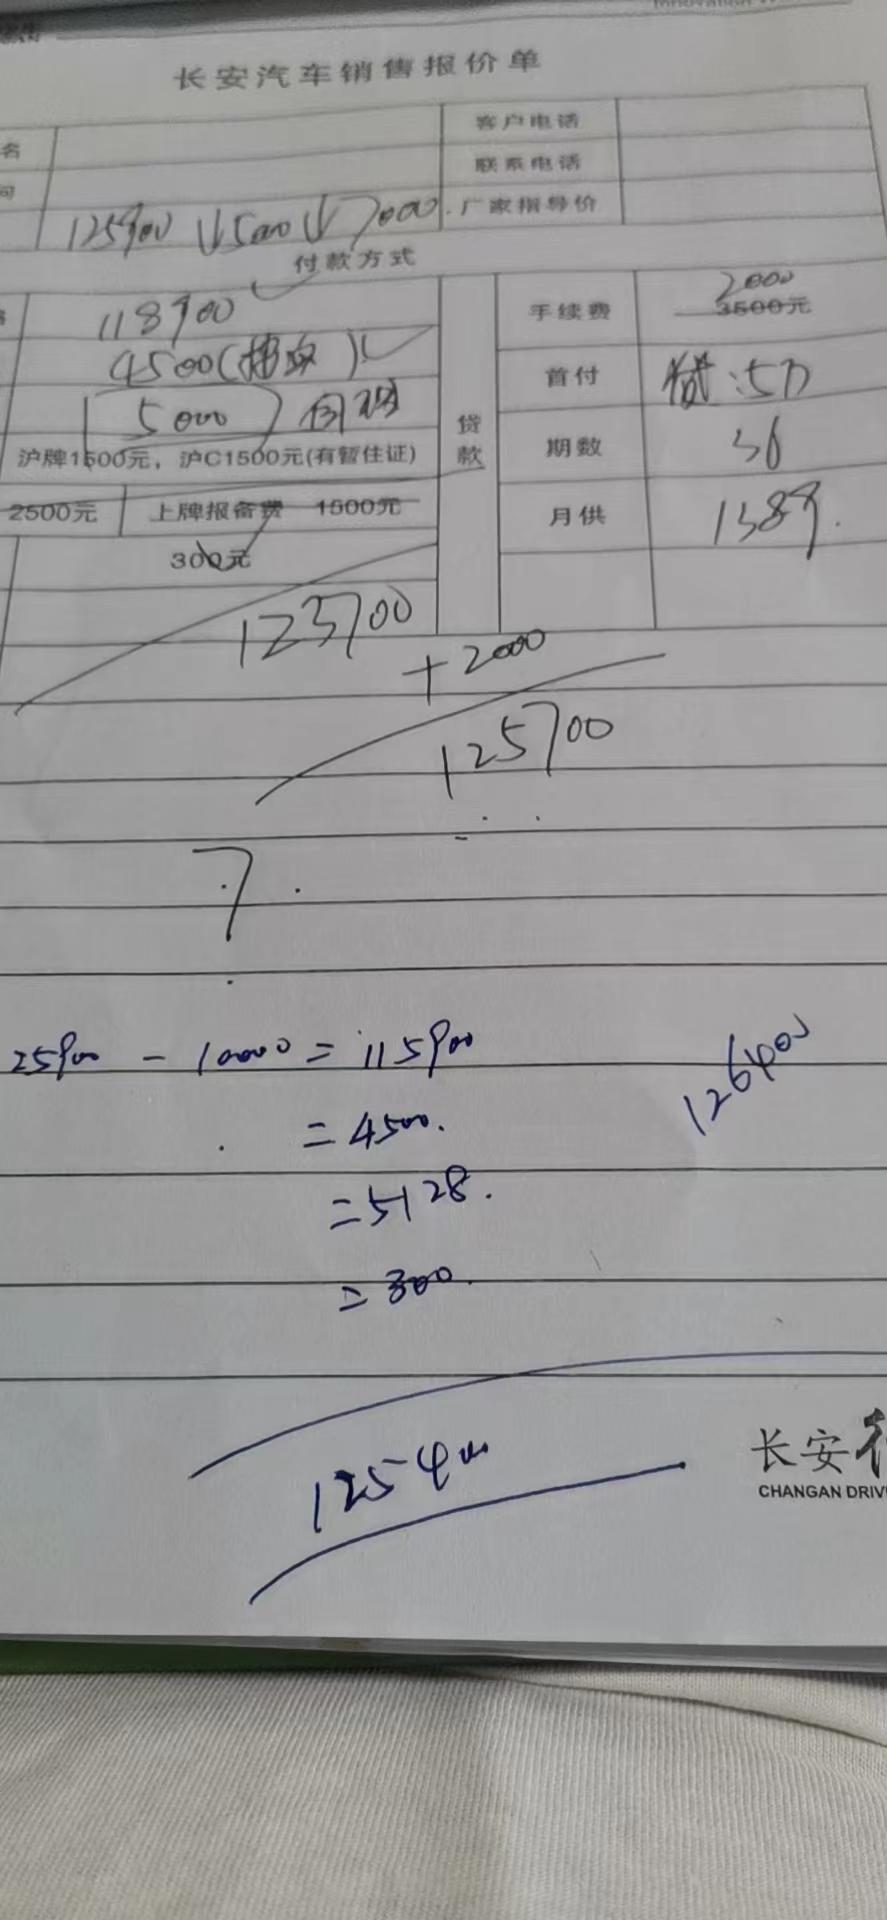 长安汽车销售报价单
名
客户电话
联系电话
125900 ↓5000↓7000.
厂家指导价
付款方式
118900
手续费
2000
3500元
4500(
首付
:5万
5000
贷款
沪牌1500元，沪C1500元(有暂住证)
期数
36
2500元
上牌报备费 1500元
月供
1389.
300元
123700
+2000
125700
7
25900 - 10000 = 115900
126400
= 4500.
= 5128.
= 300.
125400
长安
CHANGAN DRIV